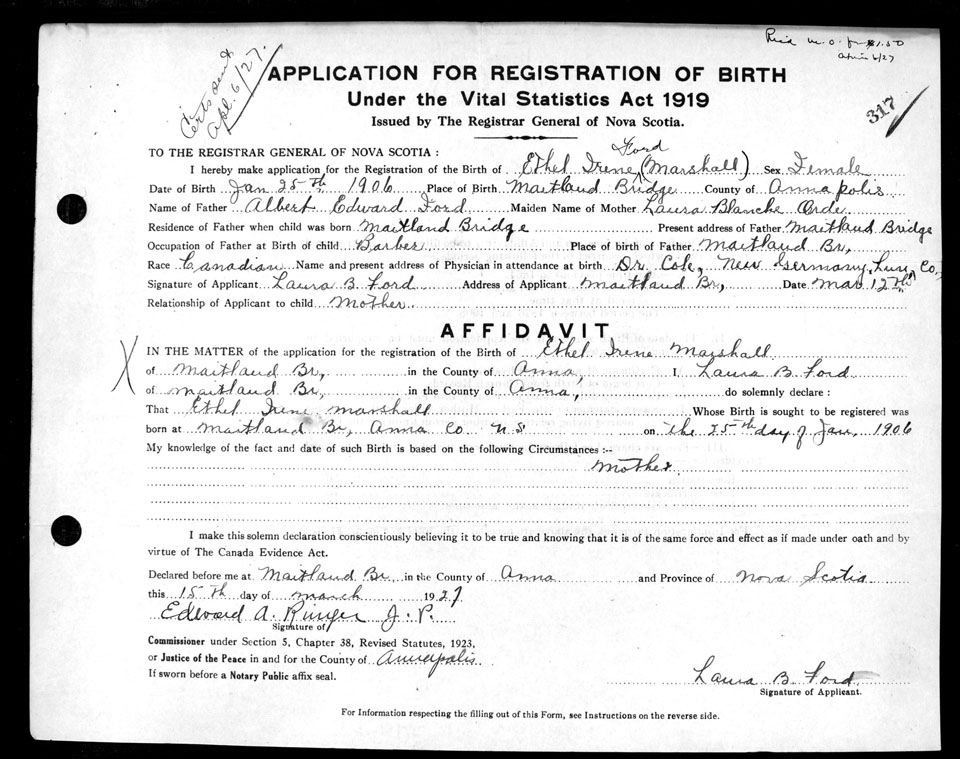 Rec'd M.O. for $1.50
Certs sent
Apl. 6/27.
317
APPLICATION FOR REGISTRATION OF BIRTH
Under the Vital Statistics Act 1919
Issued by The Registrar General of Nova Scotia.
TO THE REGISTRAR GENERAL OF NOVA SCOTIA :
Ford
I hereby make application for the Registration of the Birth of Ethel Irene (Marshall) Sex Female
Date of Birth Jan 25th 1906 Place of Birth Maitland Bridge County of Annapolis
Name of Father Albert Edward Ford Maiden Name of Mother Laura Blanche Orde
Residence of Father when child was born Maitland Bridge Present address of Father Maitland Bridge
Occupation of Father at Birth of child Barber Place of birth of Father Maitland Br,
Race Canadian Name and present address of Physician in attendance at birth Dr Cole, New Germany, Lun, Co,
Signature of Applicant Laura B Ford Address of Applicant Maitland Br, Date Mar 12th
Relationship of Applicant to child Mother
AFFIDAVIT
X
IN THE MATTER of the application for the registration of the Birth of Ethel Irene Marshall
of Maitland Br, in the County of Anna, I Laura B Ford
of Maitland Br, in the County of Anna, do solemnly declare :
That Ethel Irene Marshall Whose Birth is sought to be registered was
born at Maitland Br, Anna Co N.S on the 25th day of Jan, 1906
My knowledge of the fact and date of such Birth is based on the following Circumstances :--
Mother
I make this solemn declaration conscientiously believing it to be true and knowing that it is of the same force and effect as if made under oath and by
virtue of The Canada Evidence Act.
Declared before me at Maitland Br, in the County of Anna and Province of Nova Scotia
this 15th day of March 1927
Edward A. Ringer J.P.
Signature of
Commissioner under Section 5, Chapter 38, Revised Statutes, 1923,
or Justice of the Peace in and for the County of Annapolis
If sworn before a Notary Public affix seal.
Laura B Ford
Signature of Applicant.
For Information respecting the filling out of this Form, see Instructions on the reverse side.